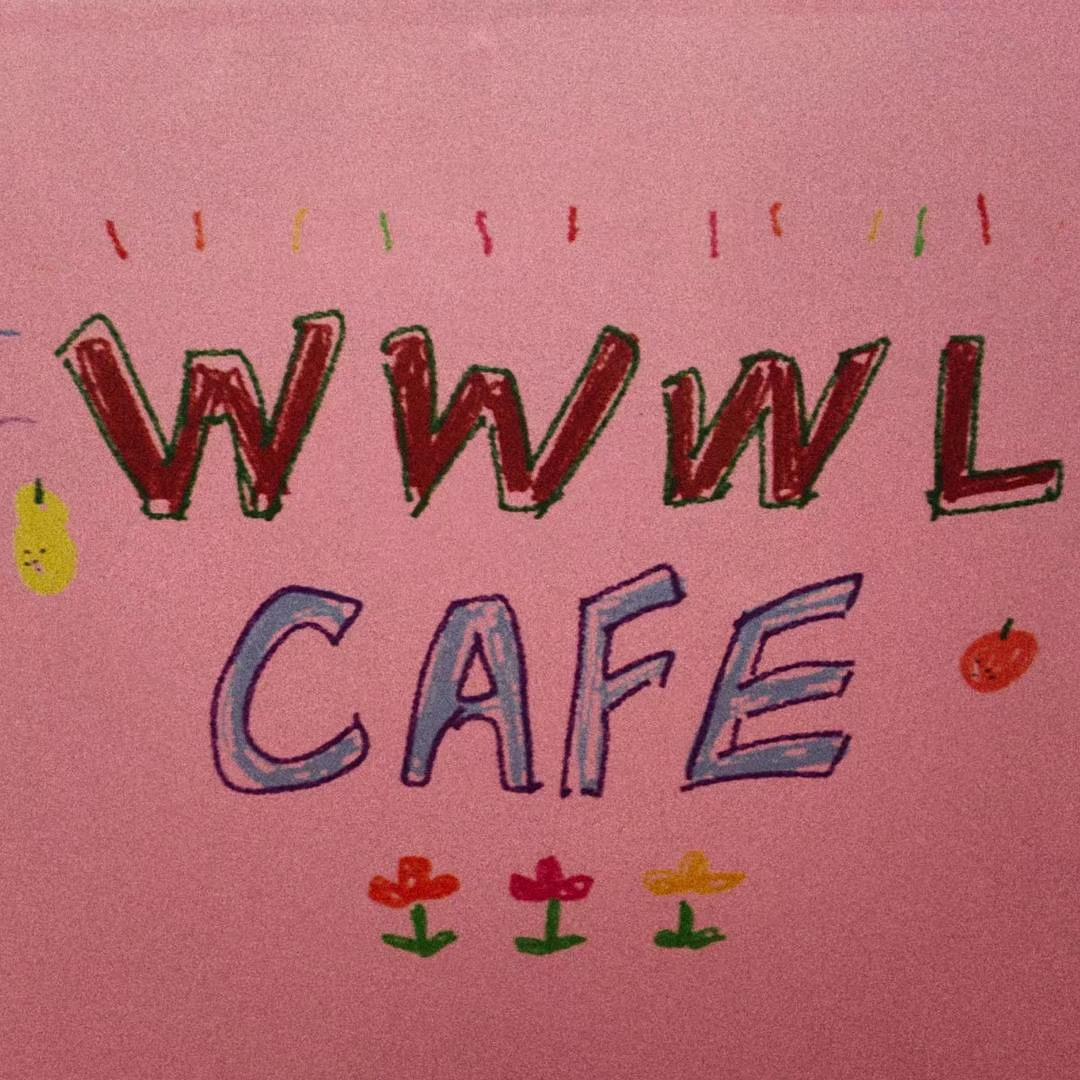 WWWL
CAFE